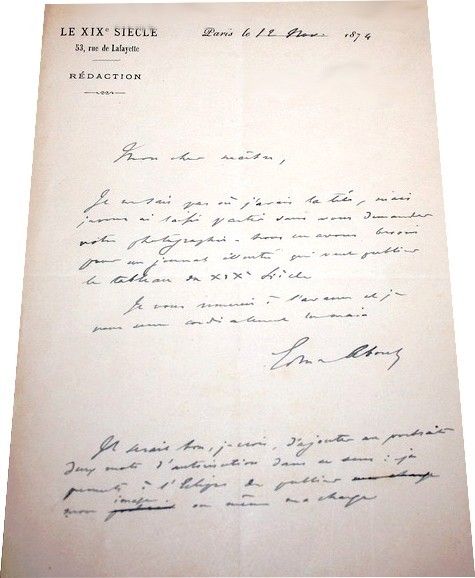 LE XIXe SIÈCLE
53, rue de Lafayette
RÉDACTION
Paris le 12 Nov 1874
Mon cher maître,
Je ne sais pas où j'avais la tête, mais
je vous ai laissé partir sans vous demander
votre photographie. Nous en avons besoin
pour un journal illustré qui veut publier
le tableau du XIXe Siècle
Je vous remercie à l'avance et je
vous serre cordialement la main
Edmond About
Il serait bon, je crois, d'ajouter au portrait
deux mots d'autorisation dans ce sens : je
permets à l'Eclipse de publier ma charge
mon image ou même ma charge